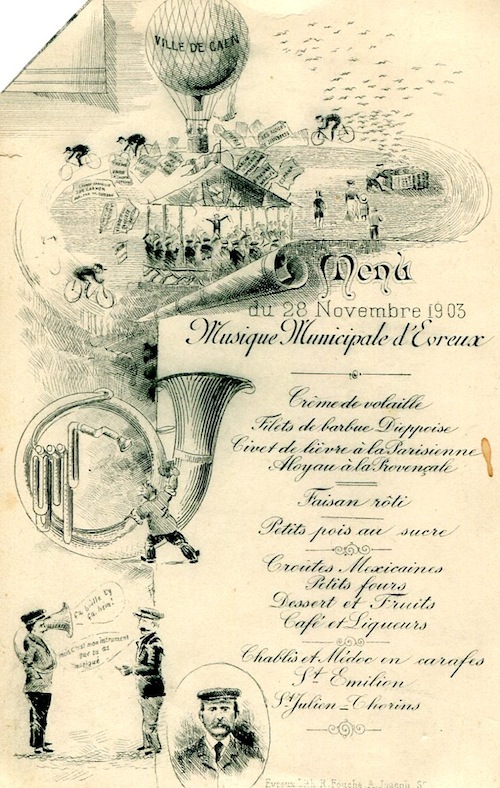 VILLE DE CAEN
Menu
du 28 Novembre 1903
Musique Municipale d'Evreux
Crême de volaille
Filets de barbue Dieppoise
Civet de lièvre à la Parisienne
Aloyau à la Provençale
Faisan rôti
Petits pois au sucre
Croutes Mexicaines
Petits fours
Dessert et Fruits
Café et Liqueurs
Chablis et Médoc en carafes
St Emilien
St Julien - Thorins
mon instrument
que tu as
Evreux Lith. R. Fouché, A. Joseph, Sr